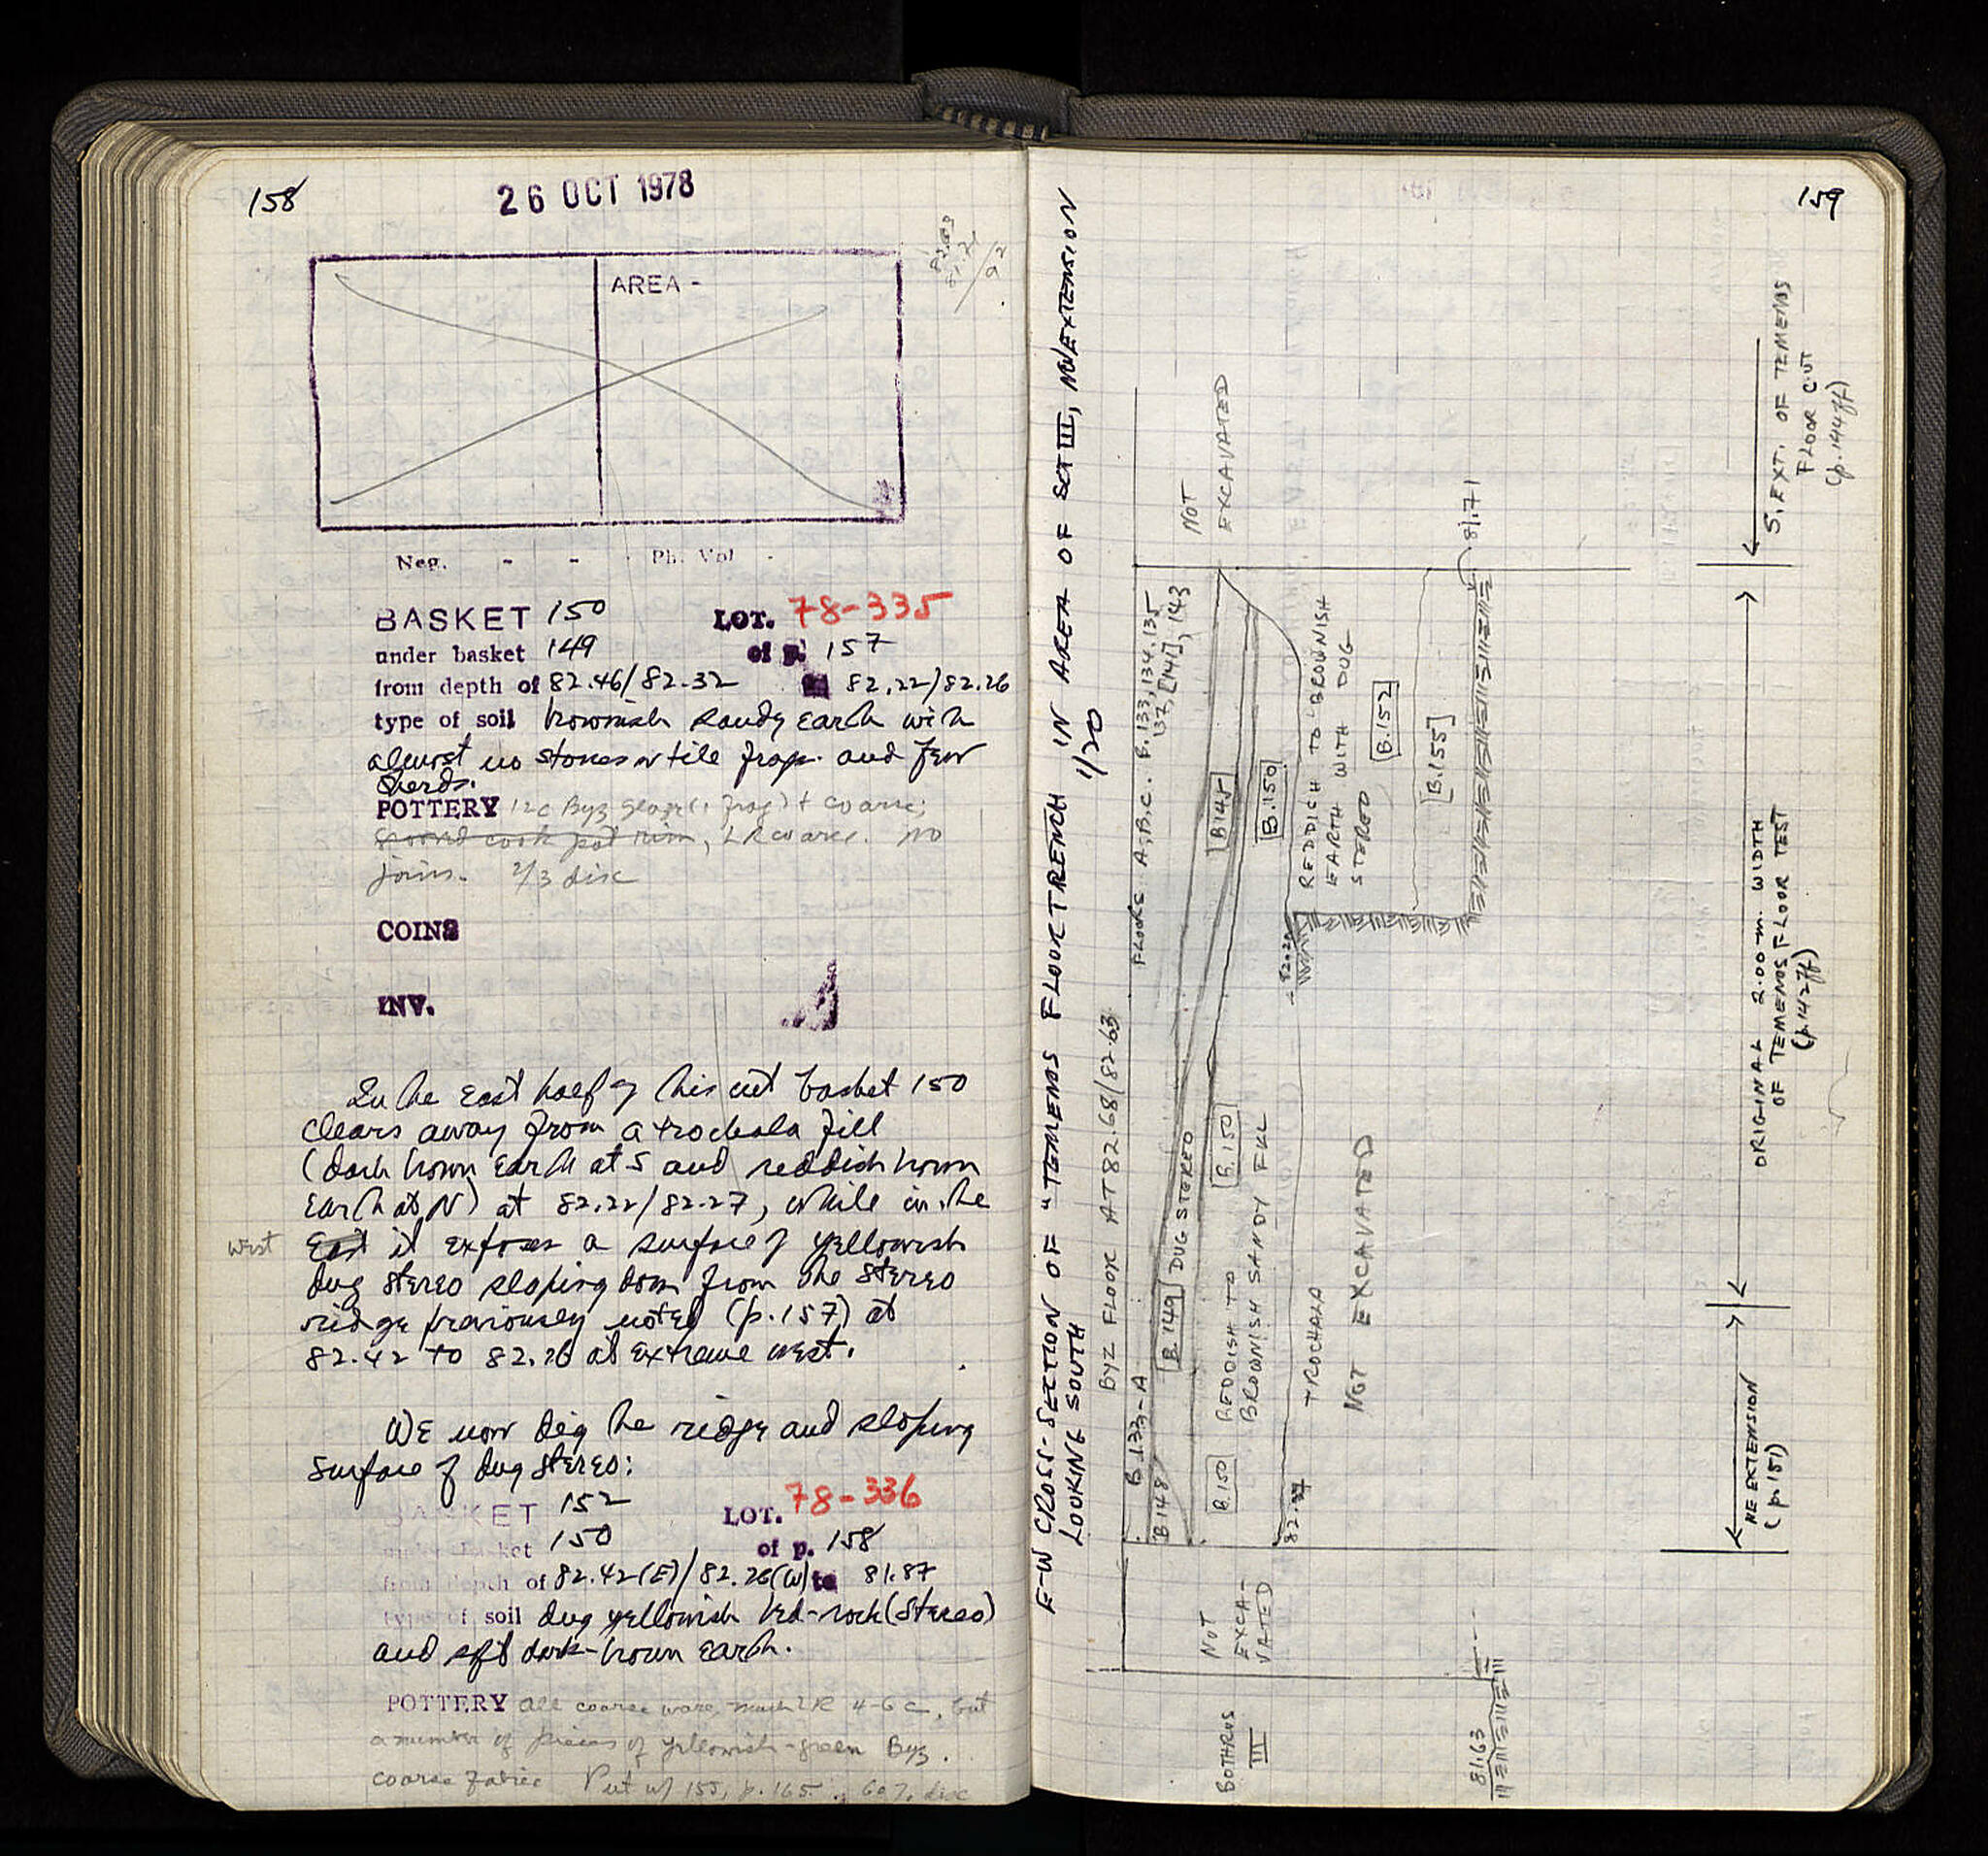 158
26 OCT 1978
AREA -
Neg. - - Ph. Vol -
BASKET 150 LOT. 78-335
under basket 149 of p. 157
from depth of 82.46/82.32 82.22/82.26
type of soil brownish sandy earth with
almost no stones or tile frags. and few
sherds.
POTTERY 12c Byz (1 frag) + coarse;
cook pot rim, LR coarse. no
joins. 2/3 disc
COINS
INV.
In the East half of this cut basket 150
clears away from a trochala fill
(dark brown earth at S and reddish brown
earth at N) at 82.22/82.27, while in the
west East it exposes a surface of yellowish
dug stereo sloping down from the stereo
ridge previously noted (p.157) at
82.42 to 82.26 at extreme west.
We now dig the ridge and sloping
surface of dug stereo:
BASKET 152 LOT. 78-336
under basket 150 of p. 158
from depth of 82.42(E)/82.26(W) to 81.87
type of soil dug yellowish bed-rock (stereo)
and soft dark-brown earth.
POTTERY all coarse ware, much LR 4-6 c, but
a number of pieces of yellowish-green Byz.
coarse fabric Put w/ 155, p.165. 60% disc
159
E-W CROSS-SECTION OF "TEMENOS FLOOR TRENCH IN AREA OF SCT III, NW EXTENSION
LOOKING SOUTH 1/20
BYZ FLOOR AT 82.68/82.63
B.133-A
FLOORS A,B,C. B.133,134,135
137,[141],143
NOT
EXCAVATED
B148
B.149 DUG STEREO
B145
B.150
B.150
B.150
REDDISH TO
BROWNISH SANDY FILL
REDDISH TO BROWNISH
EARTH WITH DUG
STEREO
B.152
[B.155]
82.20
81.71
TROCHALA
NOT EXCAVATED
NOT
EXCA-
VATED
BOTHROS
III
81.63
NE EXTENSION
(p.151)
ORIGINAL 2.00 m. WIDTH
OF TEMENOS FLOOR TEST
(p.142ff)
S. EXT. OF TEMENOS
FLOOR CUT
(p.144ff)